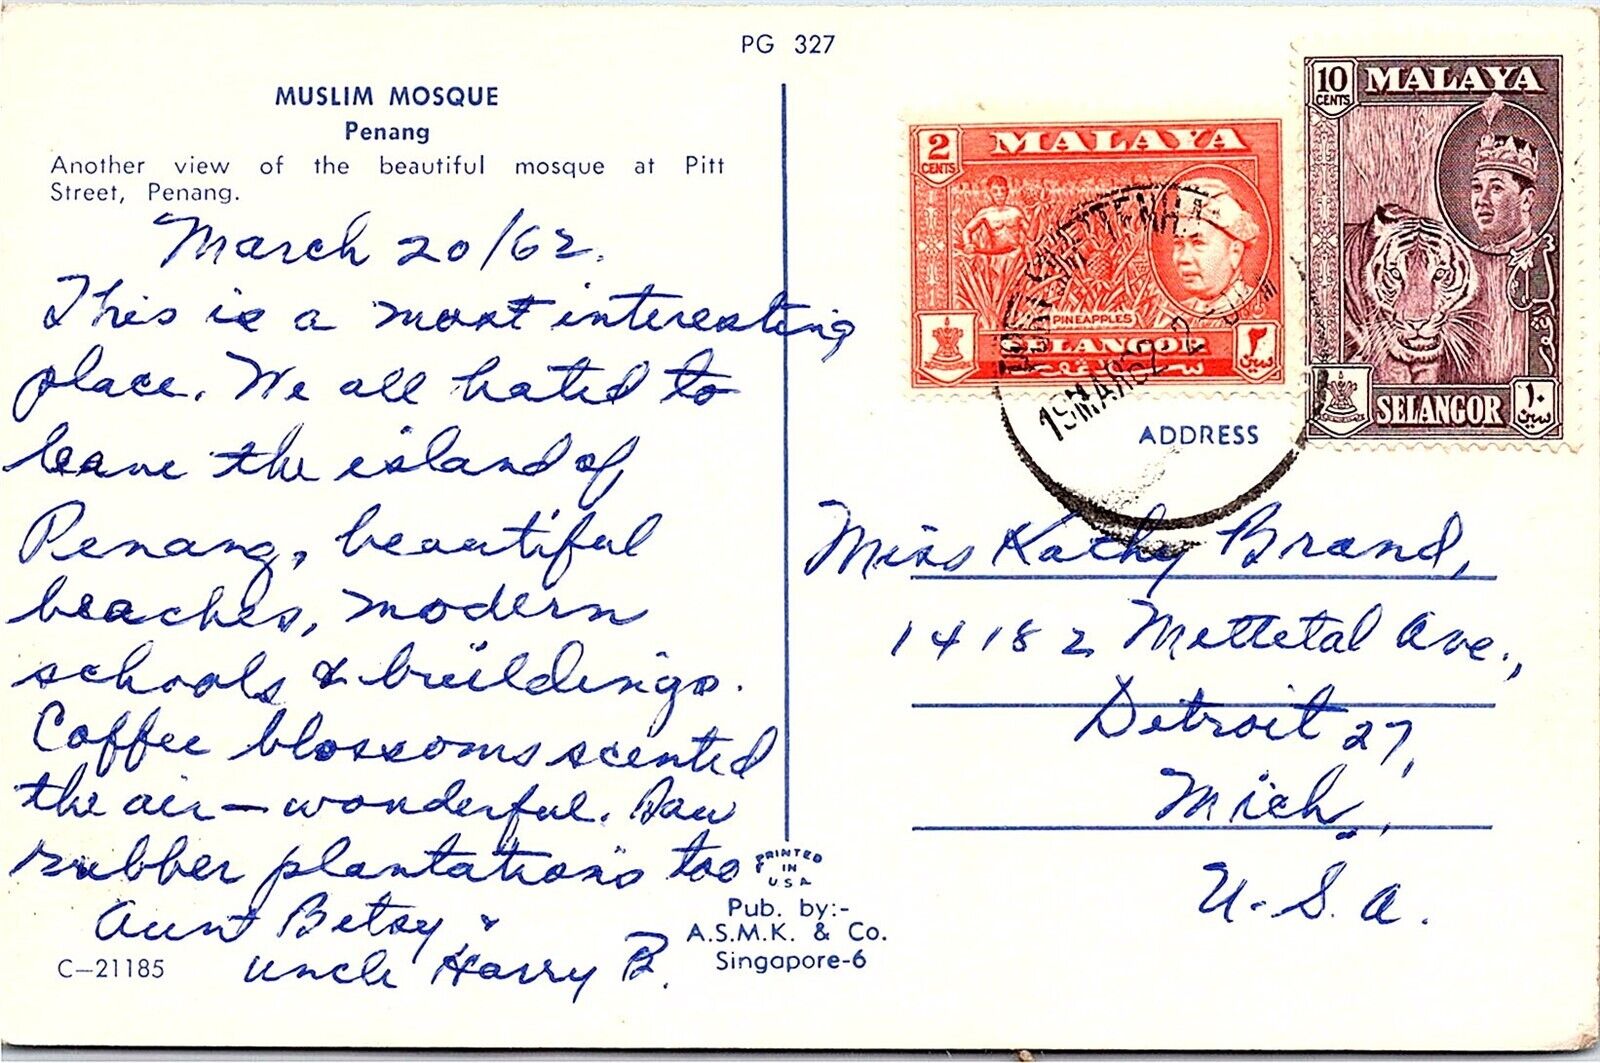 PG 327
MUSLIM MOSQUE
Penang
Another view of the beautiful mosque at Pitt
Street, Penang.
March 20/62.
This is a most interesting
place. We all hated to
leave the island of
Penang, beautiful
beaches, modern
schools & buildings.
Coffee blossoms scented
the air — wonderful. Saw
rubber plantations too
Aunt Betsy &
Uncle Harry B.
C-21185
PRINTED
IN
USA
Pub. by:-
A.S.M.K. & Co.
Singapore-6
2
CENTS
MALAYA
PINEAPPLES
SELANGOR
٢
سين
10
CENTS
MALAYA
SELANGOR
١٠
سين
19MAR62
ADDRESS
Miss Kathy Brand,
14182 Mettetal Ave.,
Detroit 27,
Mich.,
U.S.A.